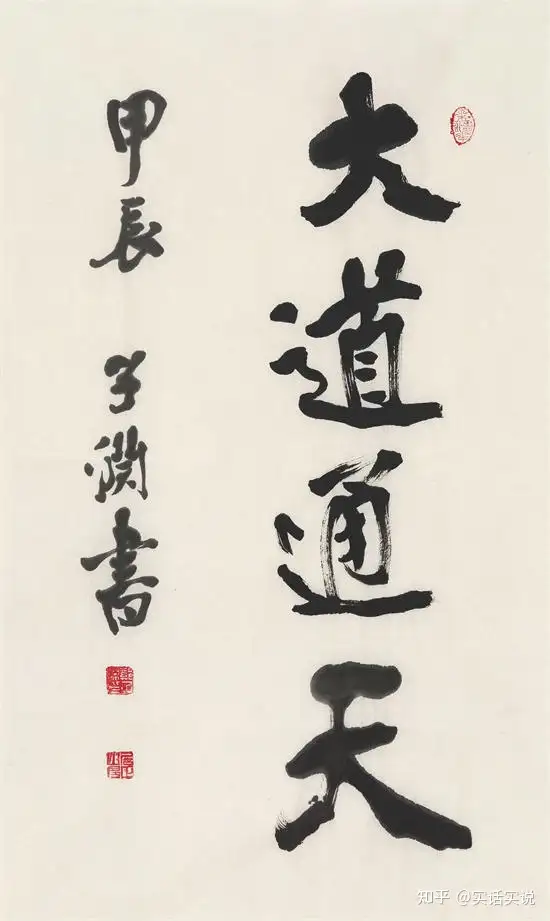 大道通天
甲辰 子渊书
知乎 @实话实说